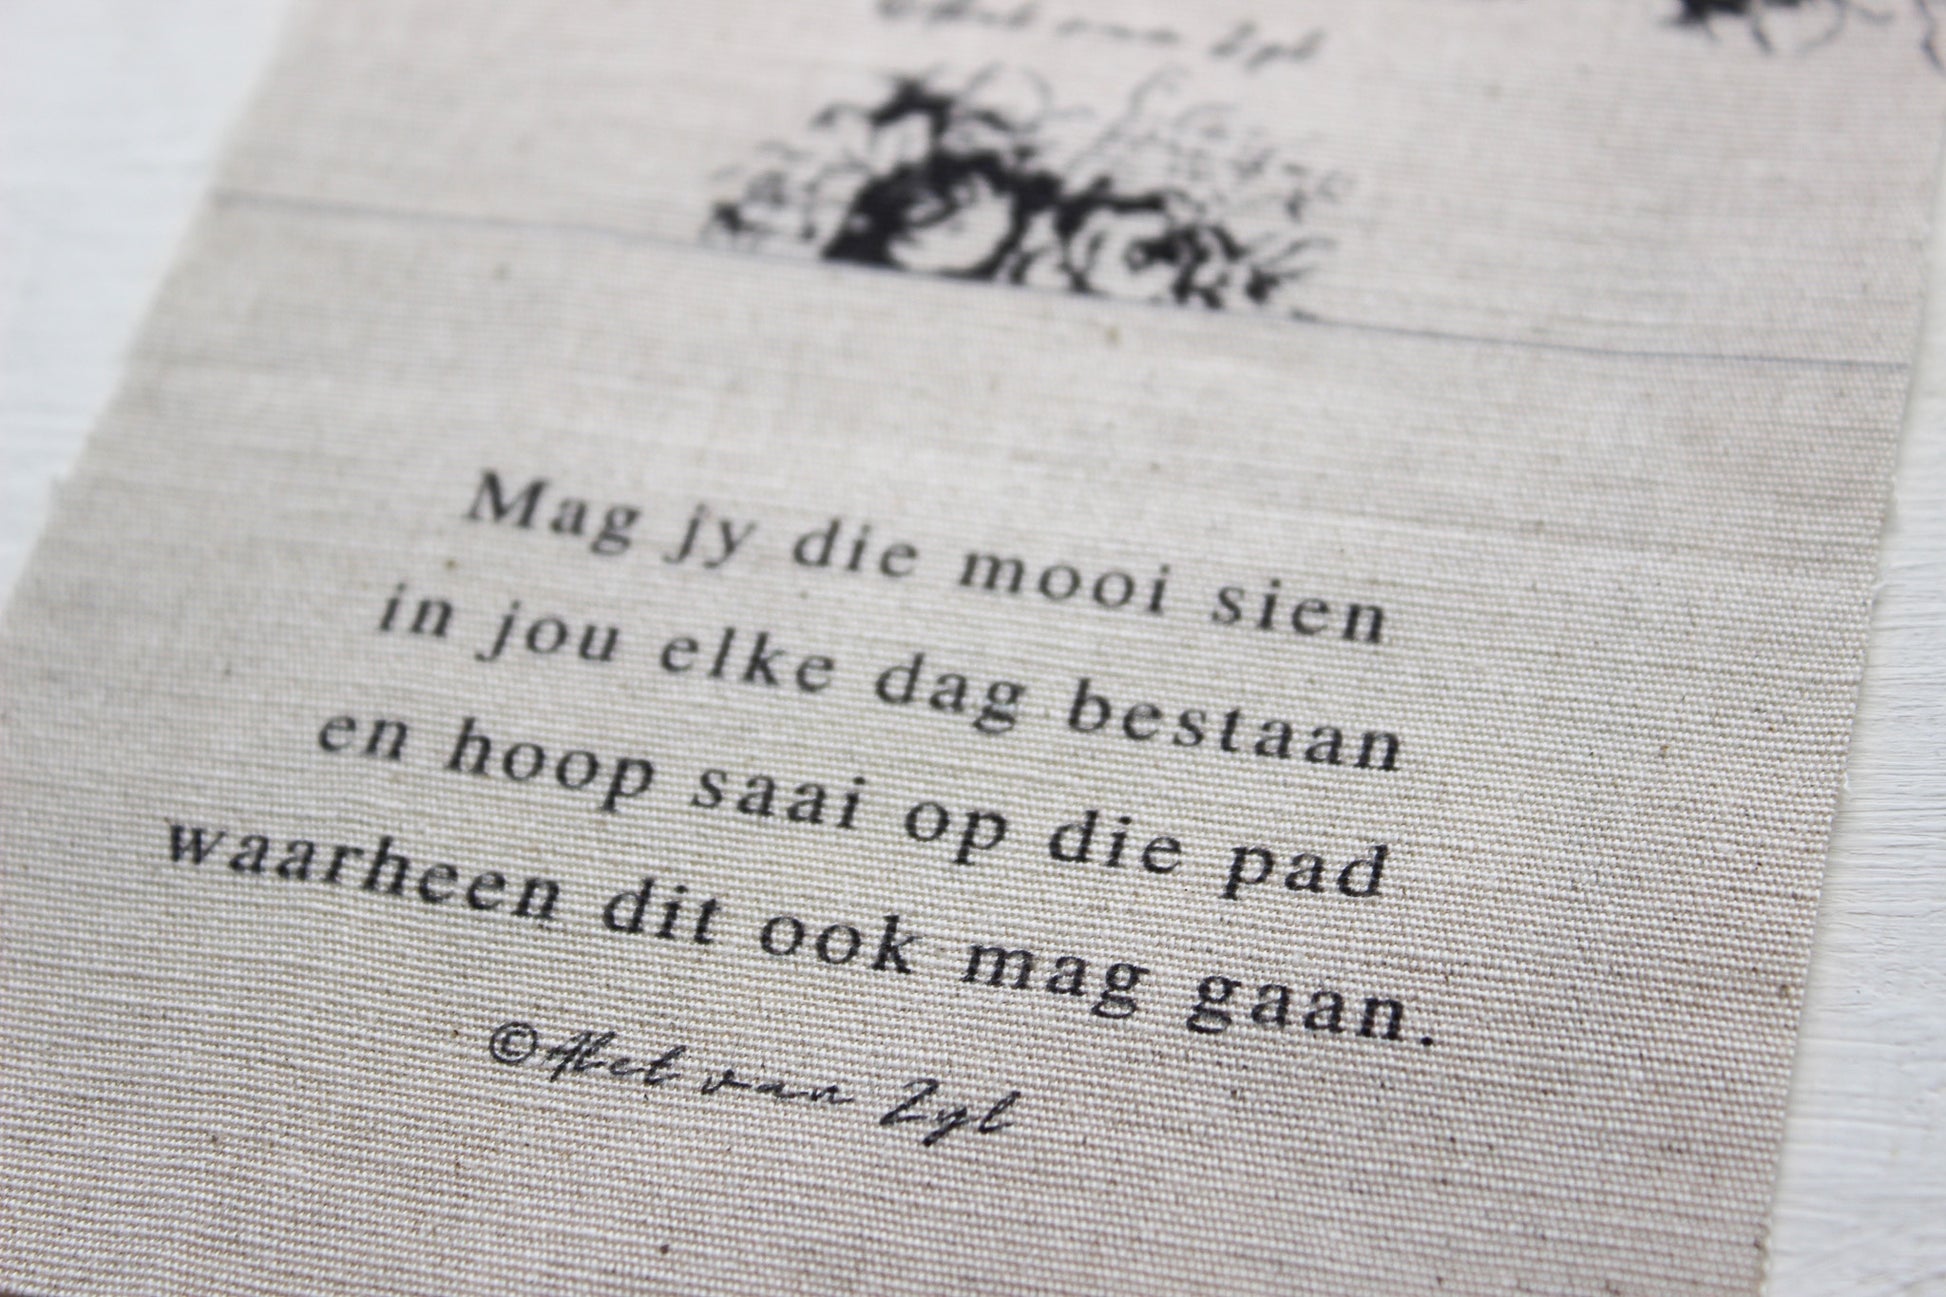 van Zyl
Mag jy die mooi sien
in jou elke dag bestaan
en hoop saai op die pad
waarheen dit ook mag gaan.
© van Zyl